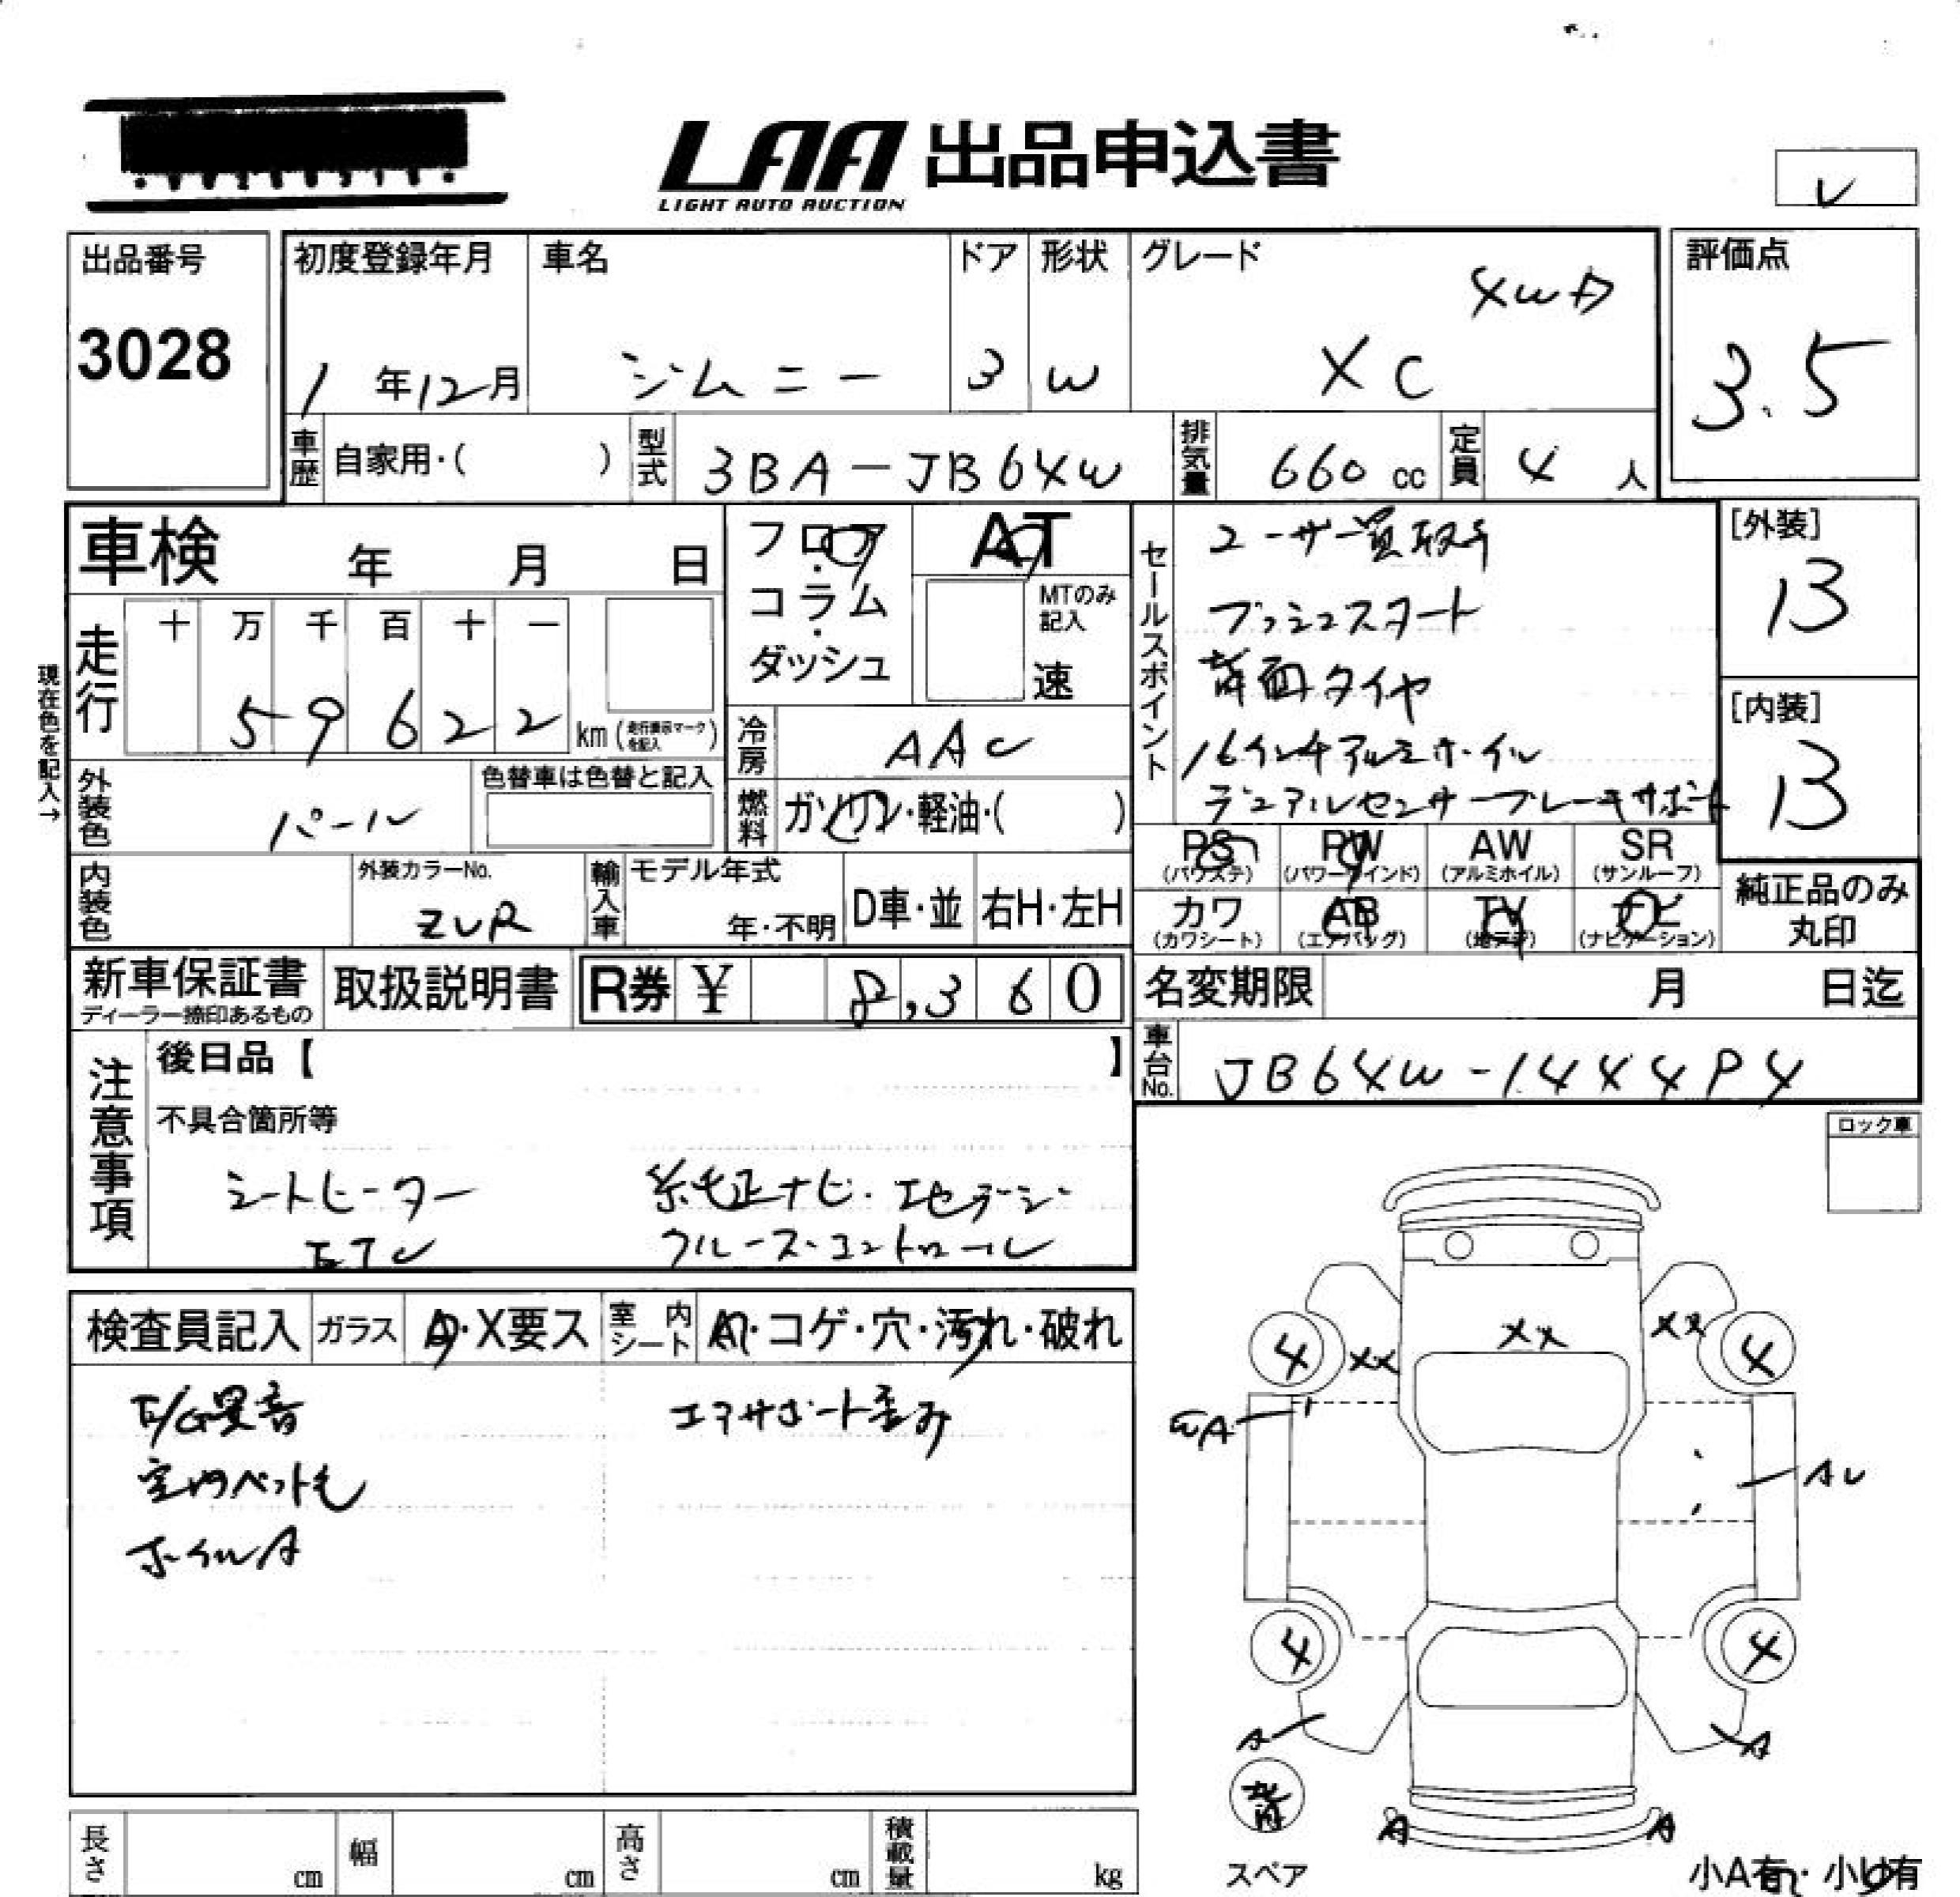 LAA 出品申込書
LIGHT AUTO AUCTION
出品番号
3028
初度登録年月
1年12月
車名
ジムニー
ドア
3
形状
W
グレード
4WD
XC
評価点
3.5
車歴
自家用・( )
型式
3BA-JB64W
排気量
660 cc
定員
4 人
車検 年 月 日
走行
十 万 千 百 十 一
5 9 6 2 2
km(走行表示マークを記入)
現在色を記入→
外装色
パール
色替車は色替と記入
フロア・コラム・ダッシュ
AT
MTのみ記入
速
冷房
AAC
燃料
ガソリン・軽油・( )
セールスポイント
ユーザー買取車
プッシュスタート
背面タイヤ
16インチアルミホイル
デュアルセンサーブレーキサポート
[外装]
13
[内装]
13
内装色
外装カラーNo.
ZVR
輸入車
モデル年式
年・不明
D車・並
右H・左H
PS
(パワステ)
PW
(パワーウインド)
AW
(アルミホイル)
SR
(サンルーフ)
カワ
(カワシート)
AB
(エアバッグ)
TV
(地デジ)
ナビ
(ナビゲーション)
純正品のみ
丸印
新車保証書
ディーラー捺印あるもの
取扱説明書
R券 ¥ 8,360
名変期限 月 日迄
車台No.
注意事項
後日品【 】
不具合箇所等
シートヒーター
ETC
純正ナビ・エセデジ
クルーズ・コントロール
ロック車
検査員記入
ガラス
A・X要ス
室内
シート
・コゲ・穴・汚れ・破れ
E/G異音
室内ペット毛
ホイルA
エアサポート歪み
XX
XX
XX
4
4
4
4
A
A
A
A
背
スペア
長さ cm
幅 cm
高さ cm
積載量 kg
小A有・小U有